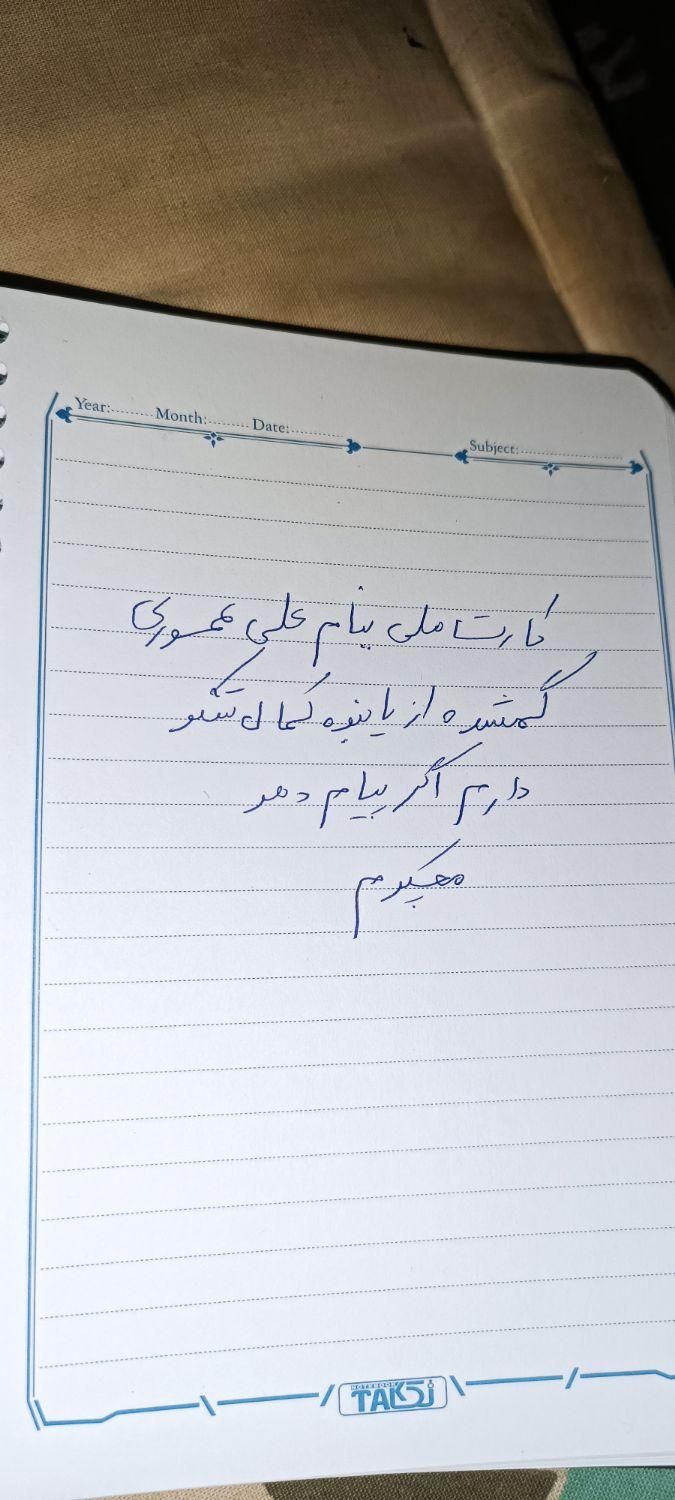 Year:......... Month:......... Date:............ Subject:........................
کارت ملی بنام علی عموری
گمشده از یابنده کمال تشکر
دارم اگر پیام دهد
میگیرم
NOTEBOOK
TAKSI